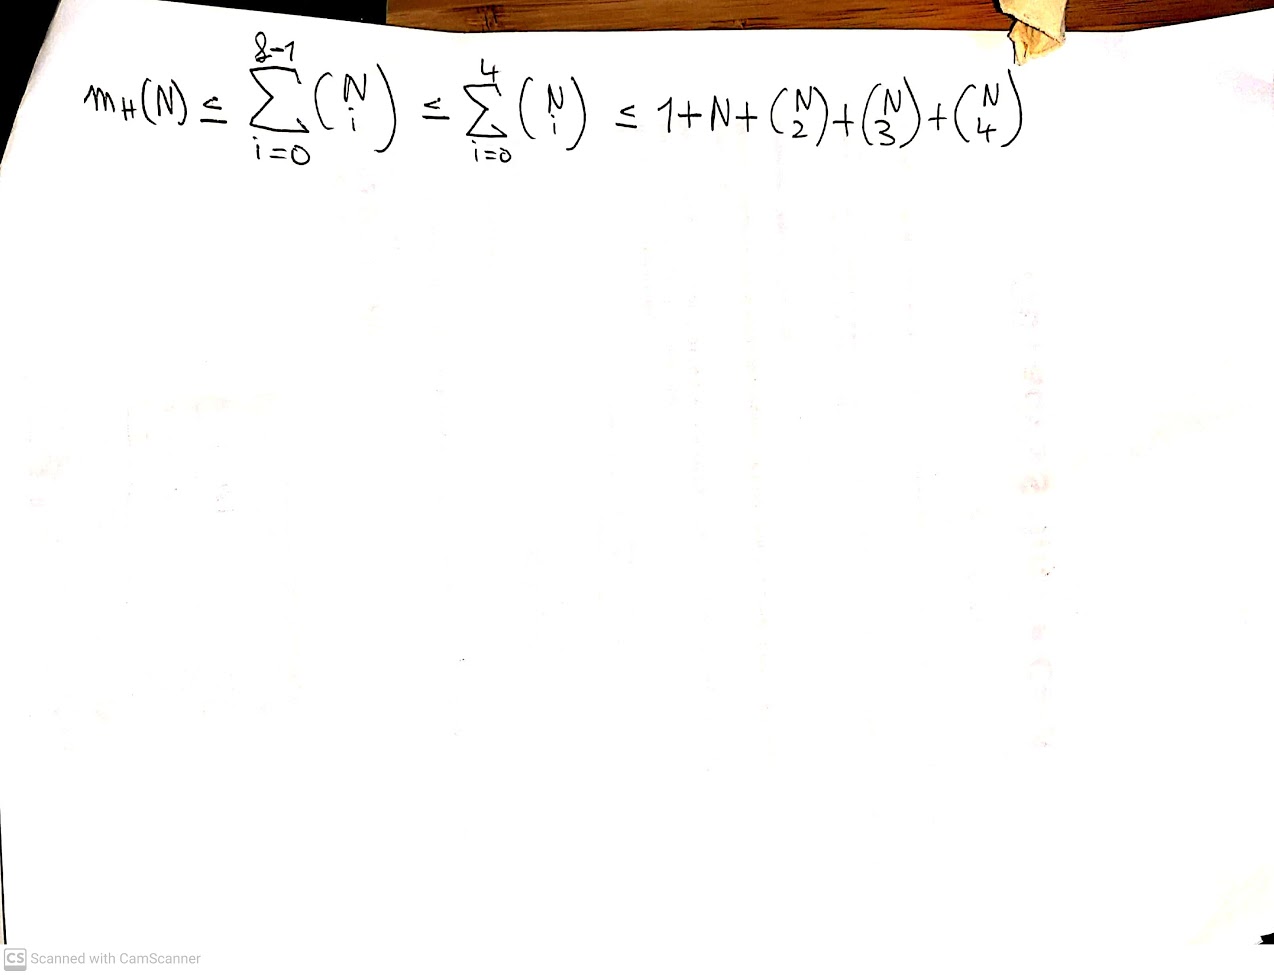 m_H(N) ≤ \sum_{i=0}^{8-1} \binom{N}{i} ≤ \sum_{i=0}^{4} \binom{N}{i} ≤ 1+N+\binom{N}{2}+\binom{N}{3}+\binom{N}{4}
CS Scanned with CamScanner